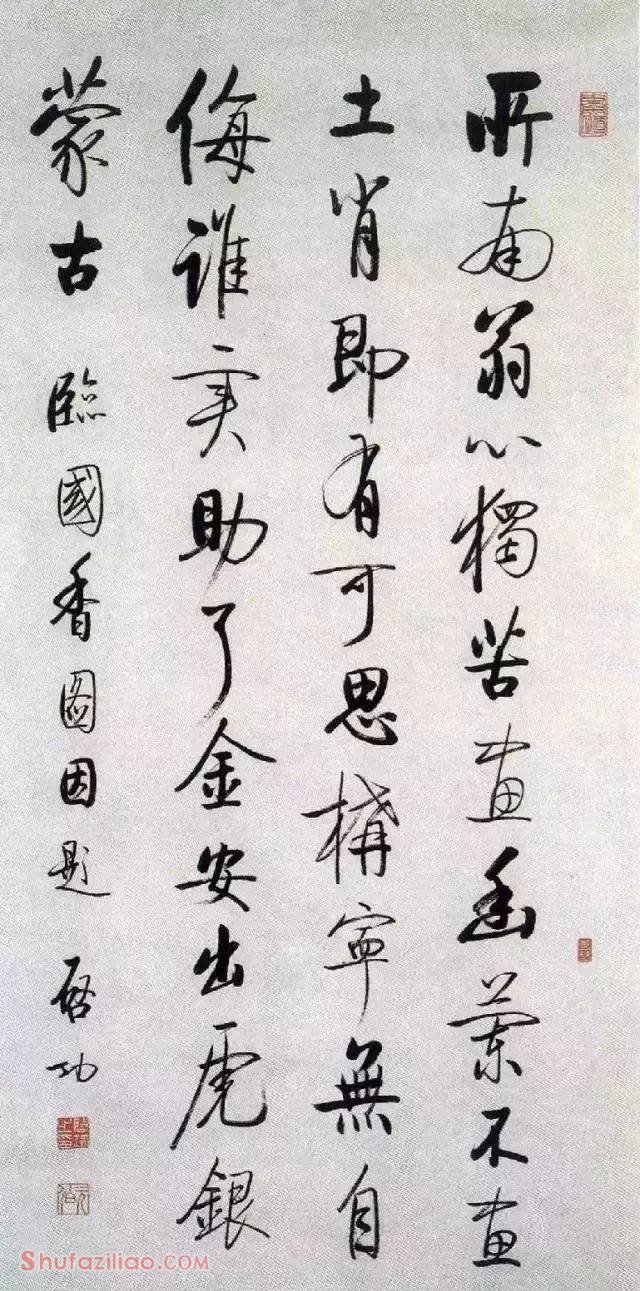 所南翁心獨苦畫幽蘭不畫
土肖即有可思構寧無自
侮誰实助了金安出虎銀
蒙古 臨國香圖因題 啓功
Shufaziliao.com